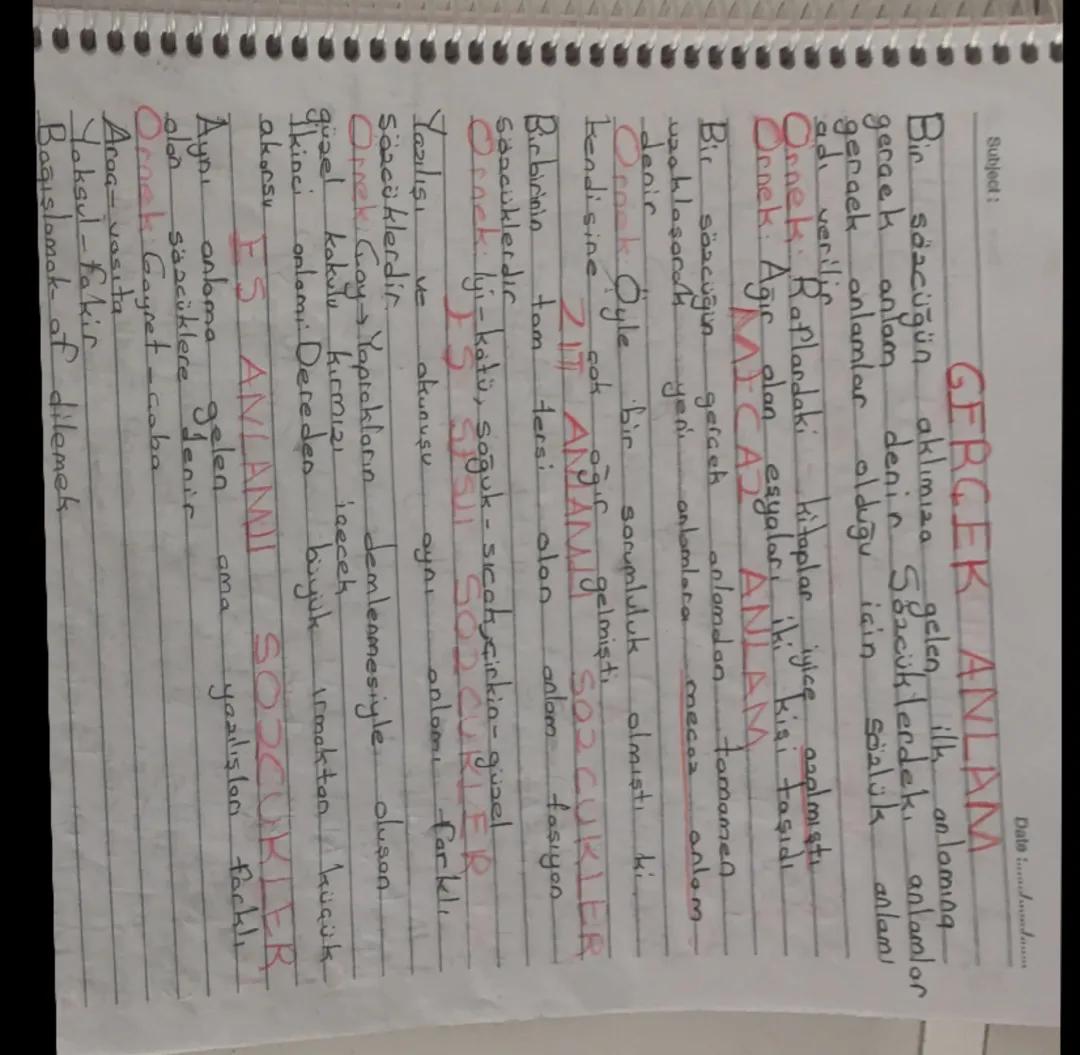 Subject :
Date :
GERÇEK ANLAM
Bir sözcüğün aklımıza gelen ilk anlamına
gerçek anlam denir Sözcüklerdeki anlamlar
gerçek anlamlar olduğu için sözlük anlamı
adı verilir
Örnek: Raflardaki kitaplar iyice
Örnek: Ağır olan eşyaları iki kişi taşıdı
MECAZ ANLAM
Bir sözcüğün gerçek anlamdan tamamen
uzaklaşarak yeni anlamlara mecaz anlam
denir
Örnek: Öyle bir sorumluluk almıştı ki
kendisine çok ağır gelmişti
ZIT ANAMLI SÖZCÜKLER
Birbirinin tam tersi olan anlam taşıyan
sözcüklerdir
Örnek: İyi-kötü, soğuk-sıcak, çirkin-güzel
EŞ SESLİ SÖZCÜKLER
Yazılışı ve okunuşu aynı anlamı farklı
sözcüklerdir.
Örnek: Çay→Yaprakların demlenmesiyle oluşan
güzel kokulu kırmızı içecek
İkinci anlamı: Dereden büyük ırmaktan küçük
akarsu
EŞ ANLAMLI SÖZCÜKLER
Aynı anlama gelen ama yazılışları farklı
olan sözcüklere denir
Örnek: Gayret-çaba
Araç-vasıta
Yoksul-fakir
Bağışlamak-af dilemek